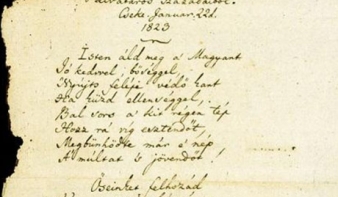 zivataros századaiból.
Cseke Januar. 22d.
1823
Isten áld meg a Magyart
Jó kedvvel, bőséggel,
Nyújts feléje védő kart
Ha küzd ellenséggel,
Bal sors a kit régen tép
Hozz rá víg esztendőt,
Megbűnhődte már e nép
A múltat 's jövendőt!
Őseinket felhozád